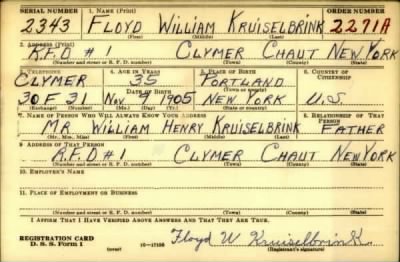 SERIAL NUMBER 1. NAME (Print) ORDER NUMBER
2343 FLOYD WILLIAM KRUISELBRINK 2271A
(First) (Middle) (Last)
2. ADDRESS (Print)
R.F.D #1 CLYMER CHAUT NEW YORK
(Number and street or R. F. D. number) (Town) (County) (State)
3. TELEPHONE 4. AGE IN YEARS 5. PLACE OF BIRTH 6. COUNTRY OF CITIZENSHIP
CLYMER 35 PORTLAND
DATE OF BIRTH (Town or county)
30 F 31 Nov 9 1905 NEW YORK U.S.
(Exchange) (Number) (Mo.) (Day) (Yr.) (State or country)
7. NAME OF PERSON WHO WILL ALWAYS KNOW YOUR ADDRESS 8. RELATIONSHIP OF THAT PERSON
MR WILLIAM HENRY KRUISELBRINK FATHER
(Mr., Mrs., Miss) (First) (Middle) (Last)
9. ADDRESS OF THAT PERSON
R.F.D #1 CLYMER CHAUT NEW YORK
(Number and street or R. F. D. number) (Town) (County) (State)
10. EMPLOYER'S NAME
11. PLACE OF EMPLOYMENT OR BUSINESS
(Number and street or R. F. D. number) (Town) (County) (State)
I AFFIRM THAT I HAVE VERIFIED ABOVE ANSWERS AND THAT THEY ARE TRUE.
REGISTRATION CARD
D. S. S. Form 1 (over) 16-17105 Floyd W Kruiselbrink
(Registrant's signature)